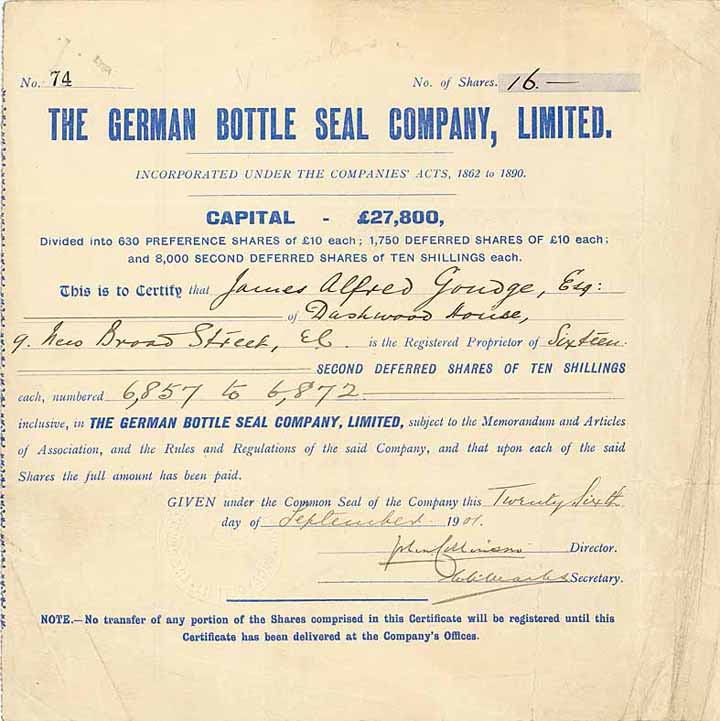 No. 74 No. of Shares. 16.—
THE GERMAN BOTTLE SEAL COMPANY, LIMITED.
INCORPORATED UNDER THE COMPANIES' ACTS, 1862 to 1890.
CAPITAL - £27,800,
Divided into 630 PREFERENCE SHARES of £10 each; 1,750 DEFERRED SHARES OF £10 each;
and 8,000 SECOND DEFERRED SHARES of TEN SHILLINGS each.
This is to Certify that James Alfred Goudge, Esq:
of Dashwood House,
9. New Broad Street, EC. is the Registered Proprietor of Sixteen
SECOND DEFERRED SHARES OF TEN SHILLINGS
each, numbered 6,857 to 6,872
inclusive, in THE GERMAN BOTTLE SEAL COMPANY, LIMITED, subject to the Memorandum and Articles
of Association, and the Rules and Regulations of the said Company, and that upon each of the said
Shares the full amount has been paid.
GIVEN under the Common Seal of the Company this Twenty Sixth
day of September 1901.
Director.
Secretary.
NOTE.—No transfer of any portion of the Shares comprised in this Certificate will be registered until this
Certificate has been delivered at the Company's Offices.